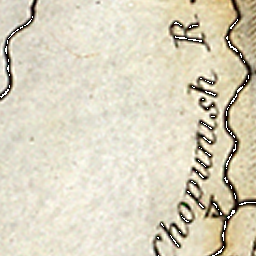 Chopunish R